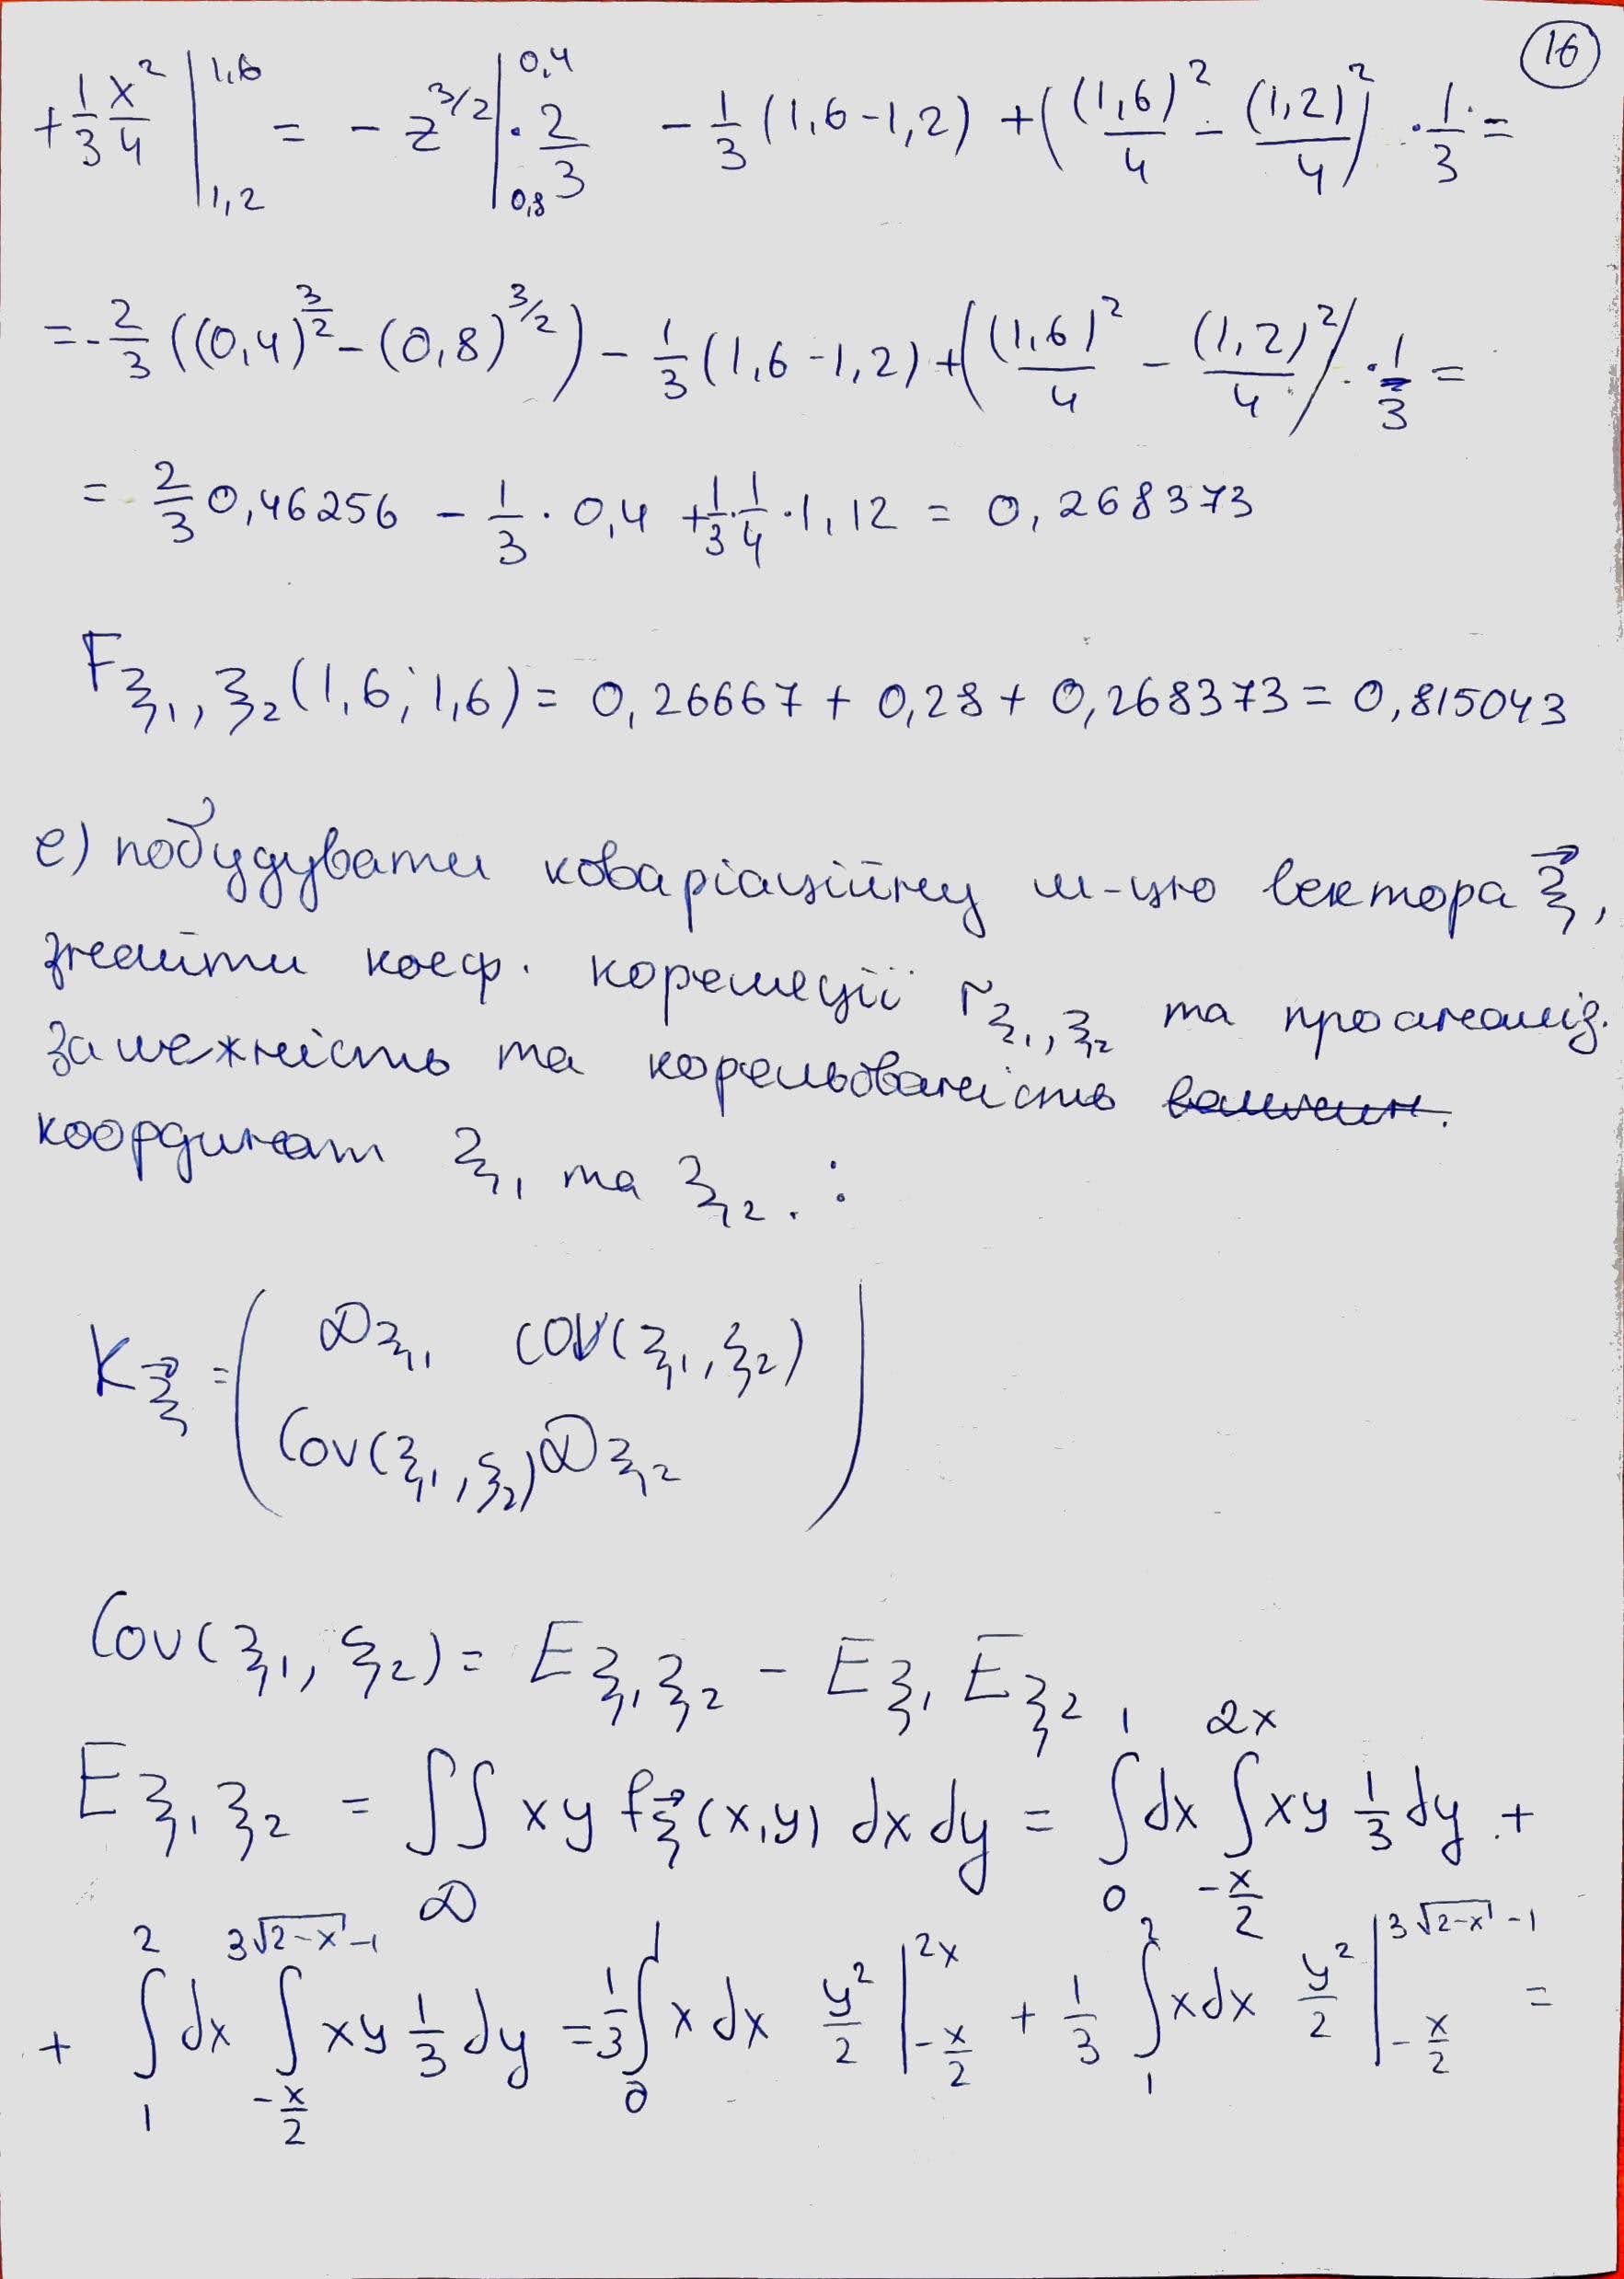 16
+ 1/3 x²/4 |_{1,2}^{1,6} = - z^{3/2} |_{0,8}^{0,4} · 2/3 - 1/3 (1,6-1,2) + ((1,6)²/4 - (1,2)²/4) · 1/3 =
= - 2/3 ((0,4)^{3/2} - (0,8)^{3/2}) - 1/3 (1,6-1,2) + ((1,6)²/4 - (1,2)²/4) · 1/3 =
= 2/3 0,46256 - 1/3 · 0,4 + 1/3 · 1/4 · 1,12 = 0,268373
F_{ξ₁,ξ₂}(1,6; 1,6) = 0,26667 + 0,28 + 0,268373 = 0,815043
е) побудувати коваріаційну м-цю вектора ξ⃗,
знайти коеф. кореляції r_{ξ₁,ξ₂} та проаналіз.
залежність та корельованість величин.
координат ξ₁ та ξ₂. :
K_{ξ⃗} = ( Dξ₁ cov(ξ₁,ξ₂)
Cov(ξ₁,ξ₂) Dξ₂ )
Cov(ξ₁,ξ₂) = Eξ₁ξ₂ - Eξ₁Eξ₂
Eξ₁ξ₂ = ∬_D xy f_{ξ⃗}(x,y) dxdy = ∫_0^1 dx ∫_{-x/2}^{2x} xy 1/3 dy +
+ ∫_1^2 dx ∫_{-x/2}^{3√(2-x) -1} xy 1/3 dy = 1/3 ∫_0^1 x dx y²/2 |_{-x/2}^{2x} + 1/3 ∫_1^2 x dx y²/2 |_{-x/2}^{3√(2-x) -1} =